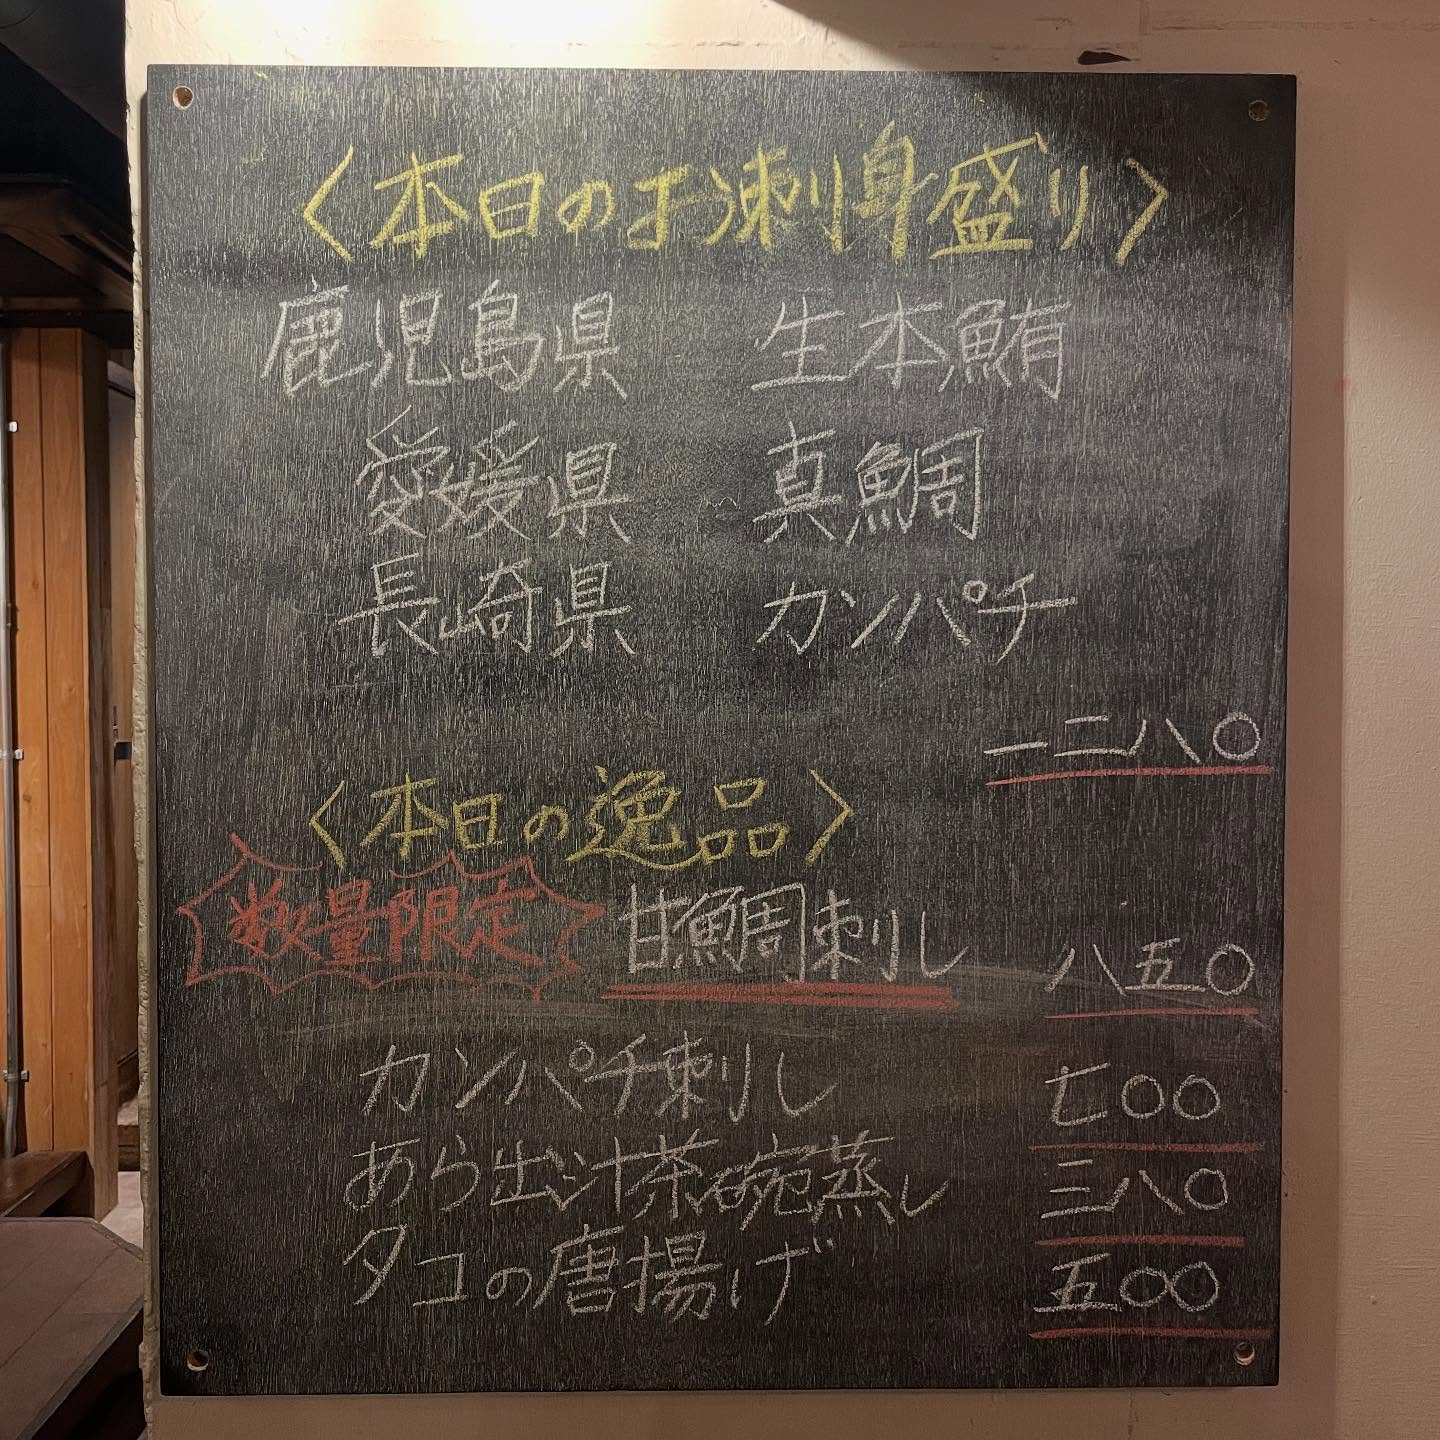 〈本日のお刺身盛り〉
鹿児島県 生本鮪
愛媛県 真鯛
長崎県 カンパチ
一二八〇
〈本日の逸品〉
数量限定 甘鯛刺し 八五〇
カンパチ刺し 七〇〇
あら出汁茶碗蒸し 三八〇
タコの唐揚げ 五〇〇